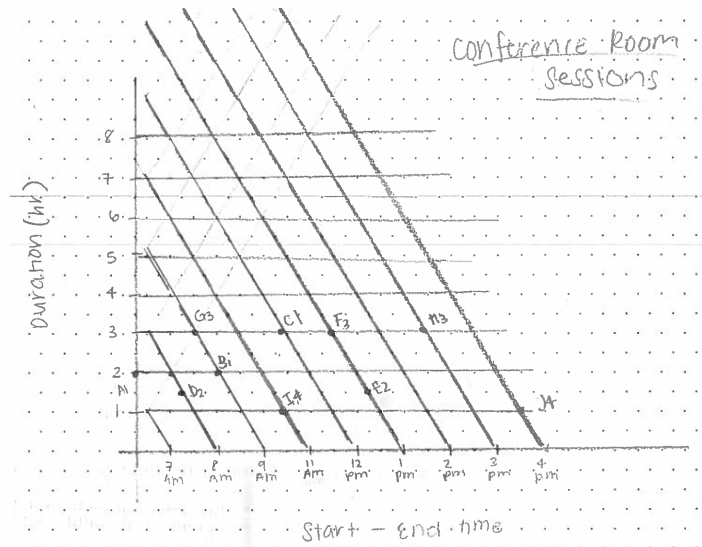 Conference Room
Sessions
Duration (hr)
8
7
6
5
4
3
2
1
G3
C1
F3
H3
A1
B1
D2
E2
I4
J4
7 AM
8 AM
9 AM
11 AM
12 pm
1 pm
2 pm
3 pm
4 pm
Start - End time